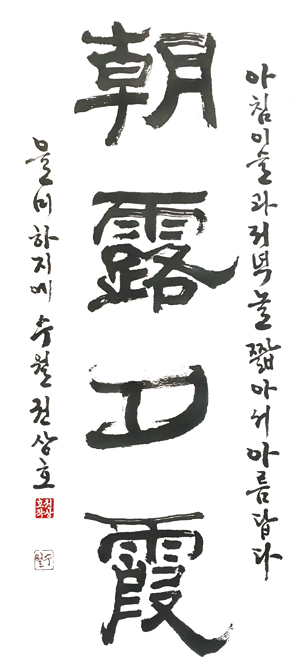 아침이슬과저녁놀 짧아서아름답다
朝露夕霞
을미하지에 수월 권상호